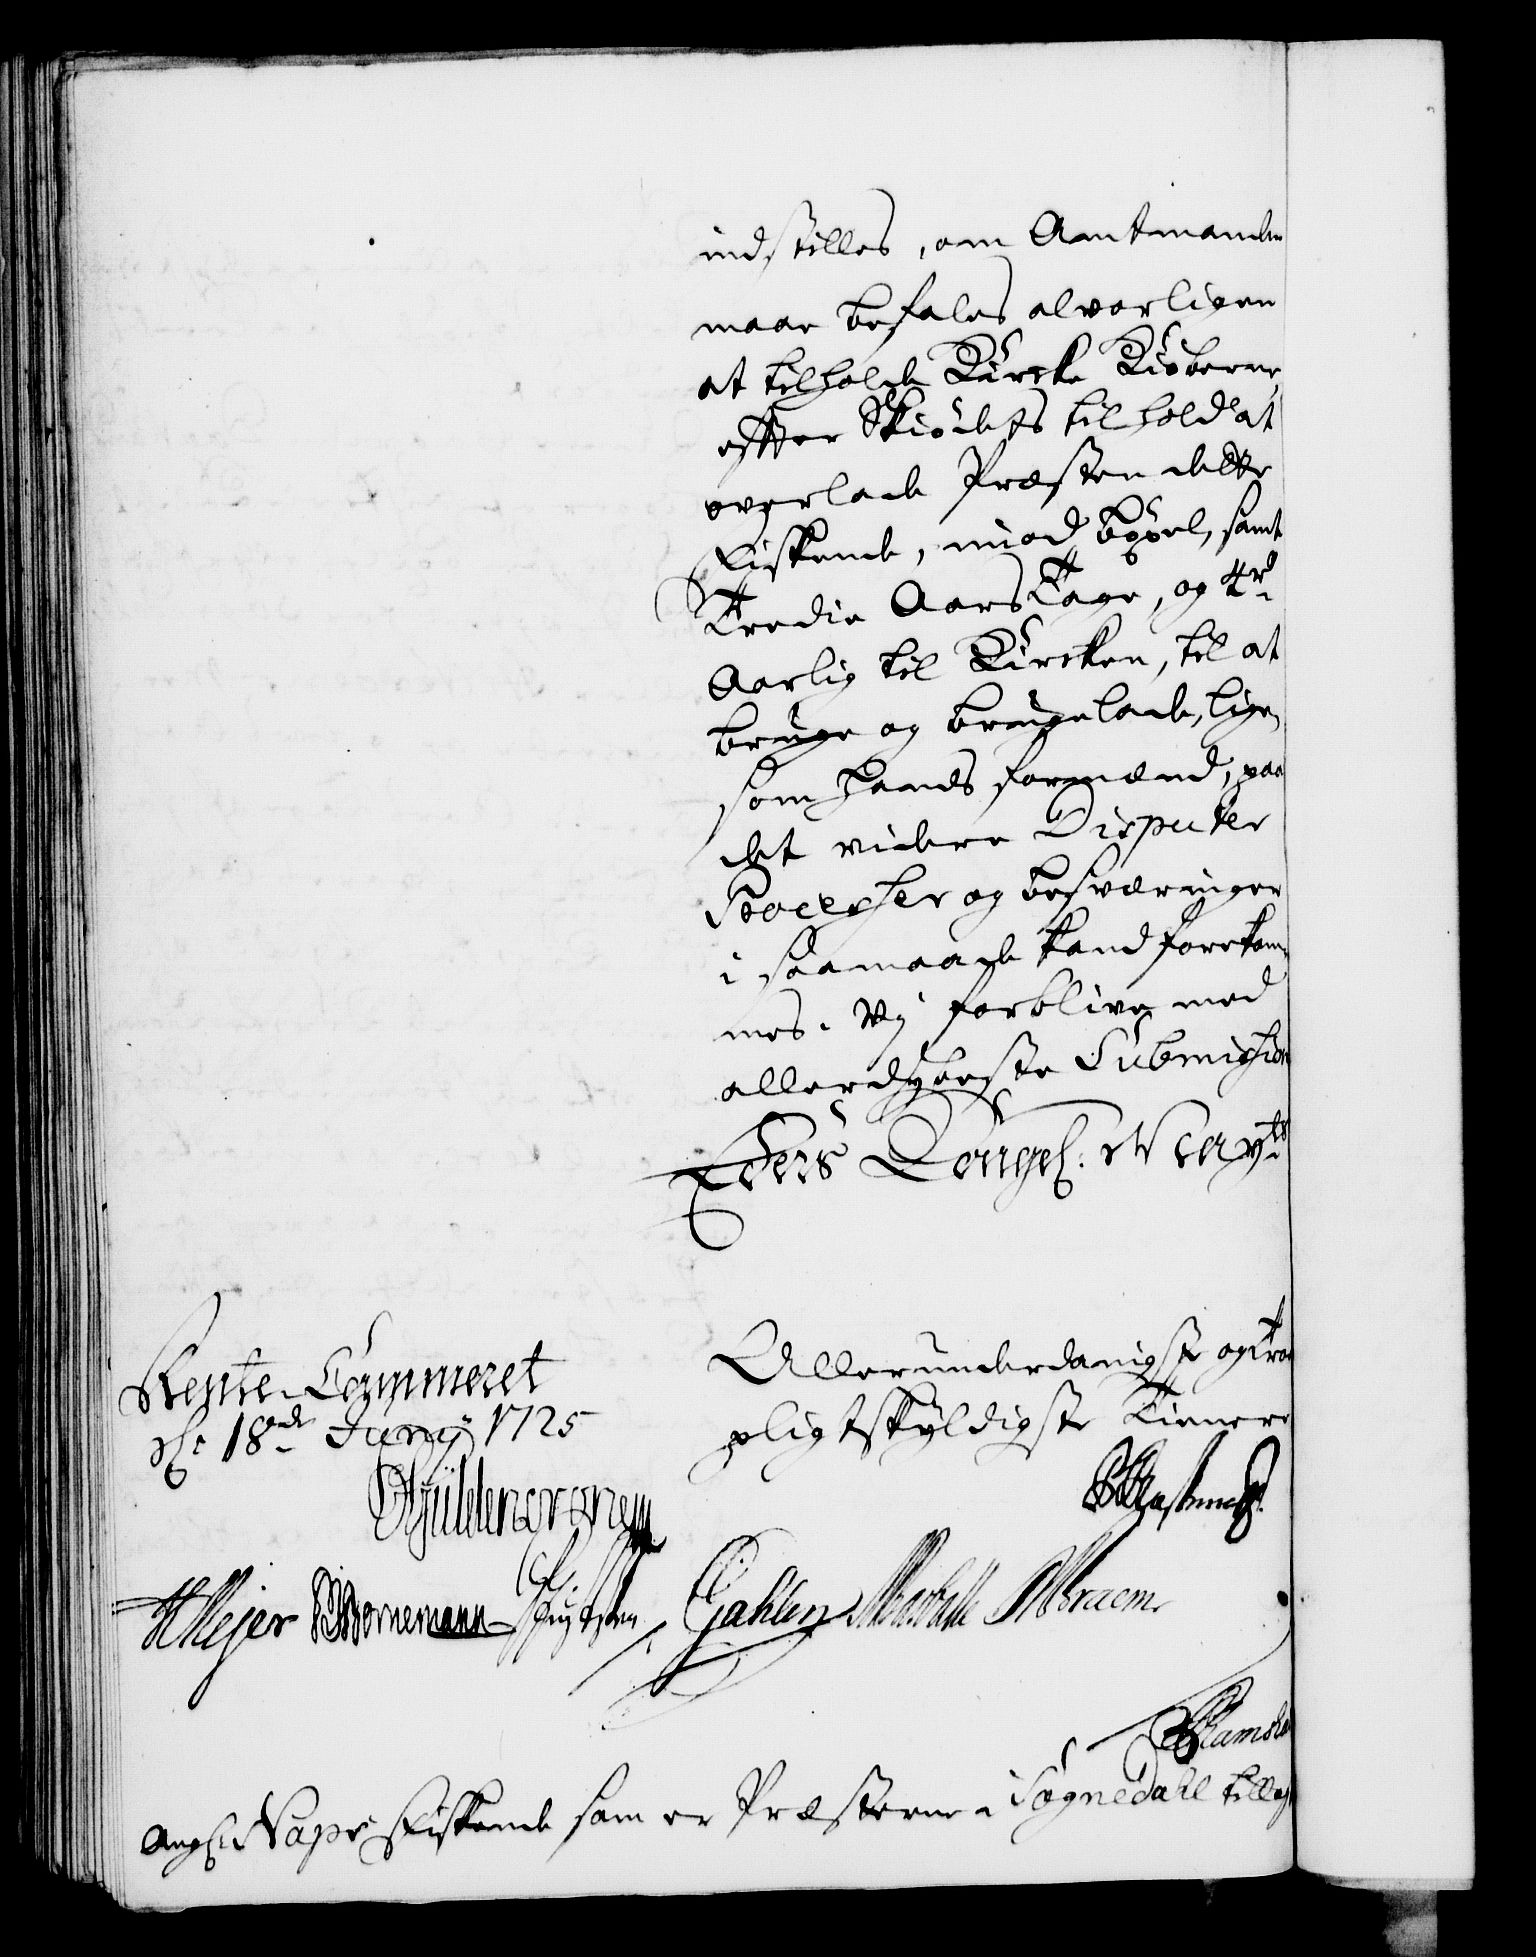 indstilles, om Amtmanden
maae befales alvorligen
at tilholde Kircke Kiøberne,
efter Skiødets tilhold at
overlade Præsten dette
Fiskende, imod bøxel, samt
Tredie Aars Tage, og 4 rd
Aarlig til Kircken, til at
bruge og brugelade, lige-
som hands formænd, paa
det videre Disputer
Processer og besværinger
i saamaade kand forekom-
mes. Vj forblive med
allerdybeste Submission
Eders Kongel: May.ts
Allerunderdanigste og troe
pligtskyldigste Tienere
Rente-Cammeret
d: 18de Junij 1725
Gÿldencrone
HMejer Bornemann Gahlen Braem
Ramsha
Angl: Vaps Fiskende som er Præsterne i Sognedahl tillagt